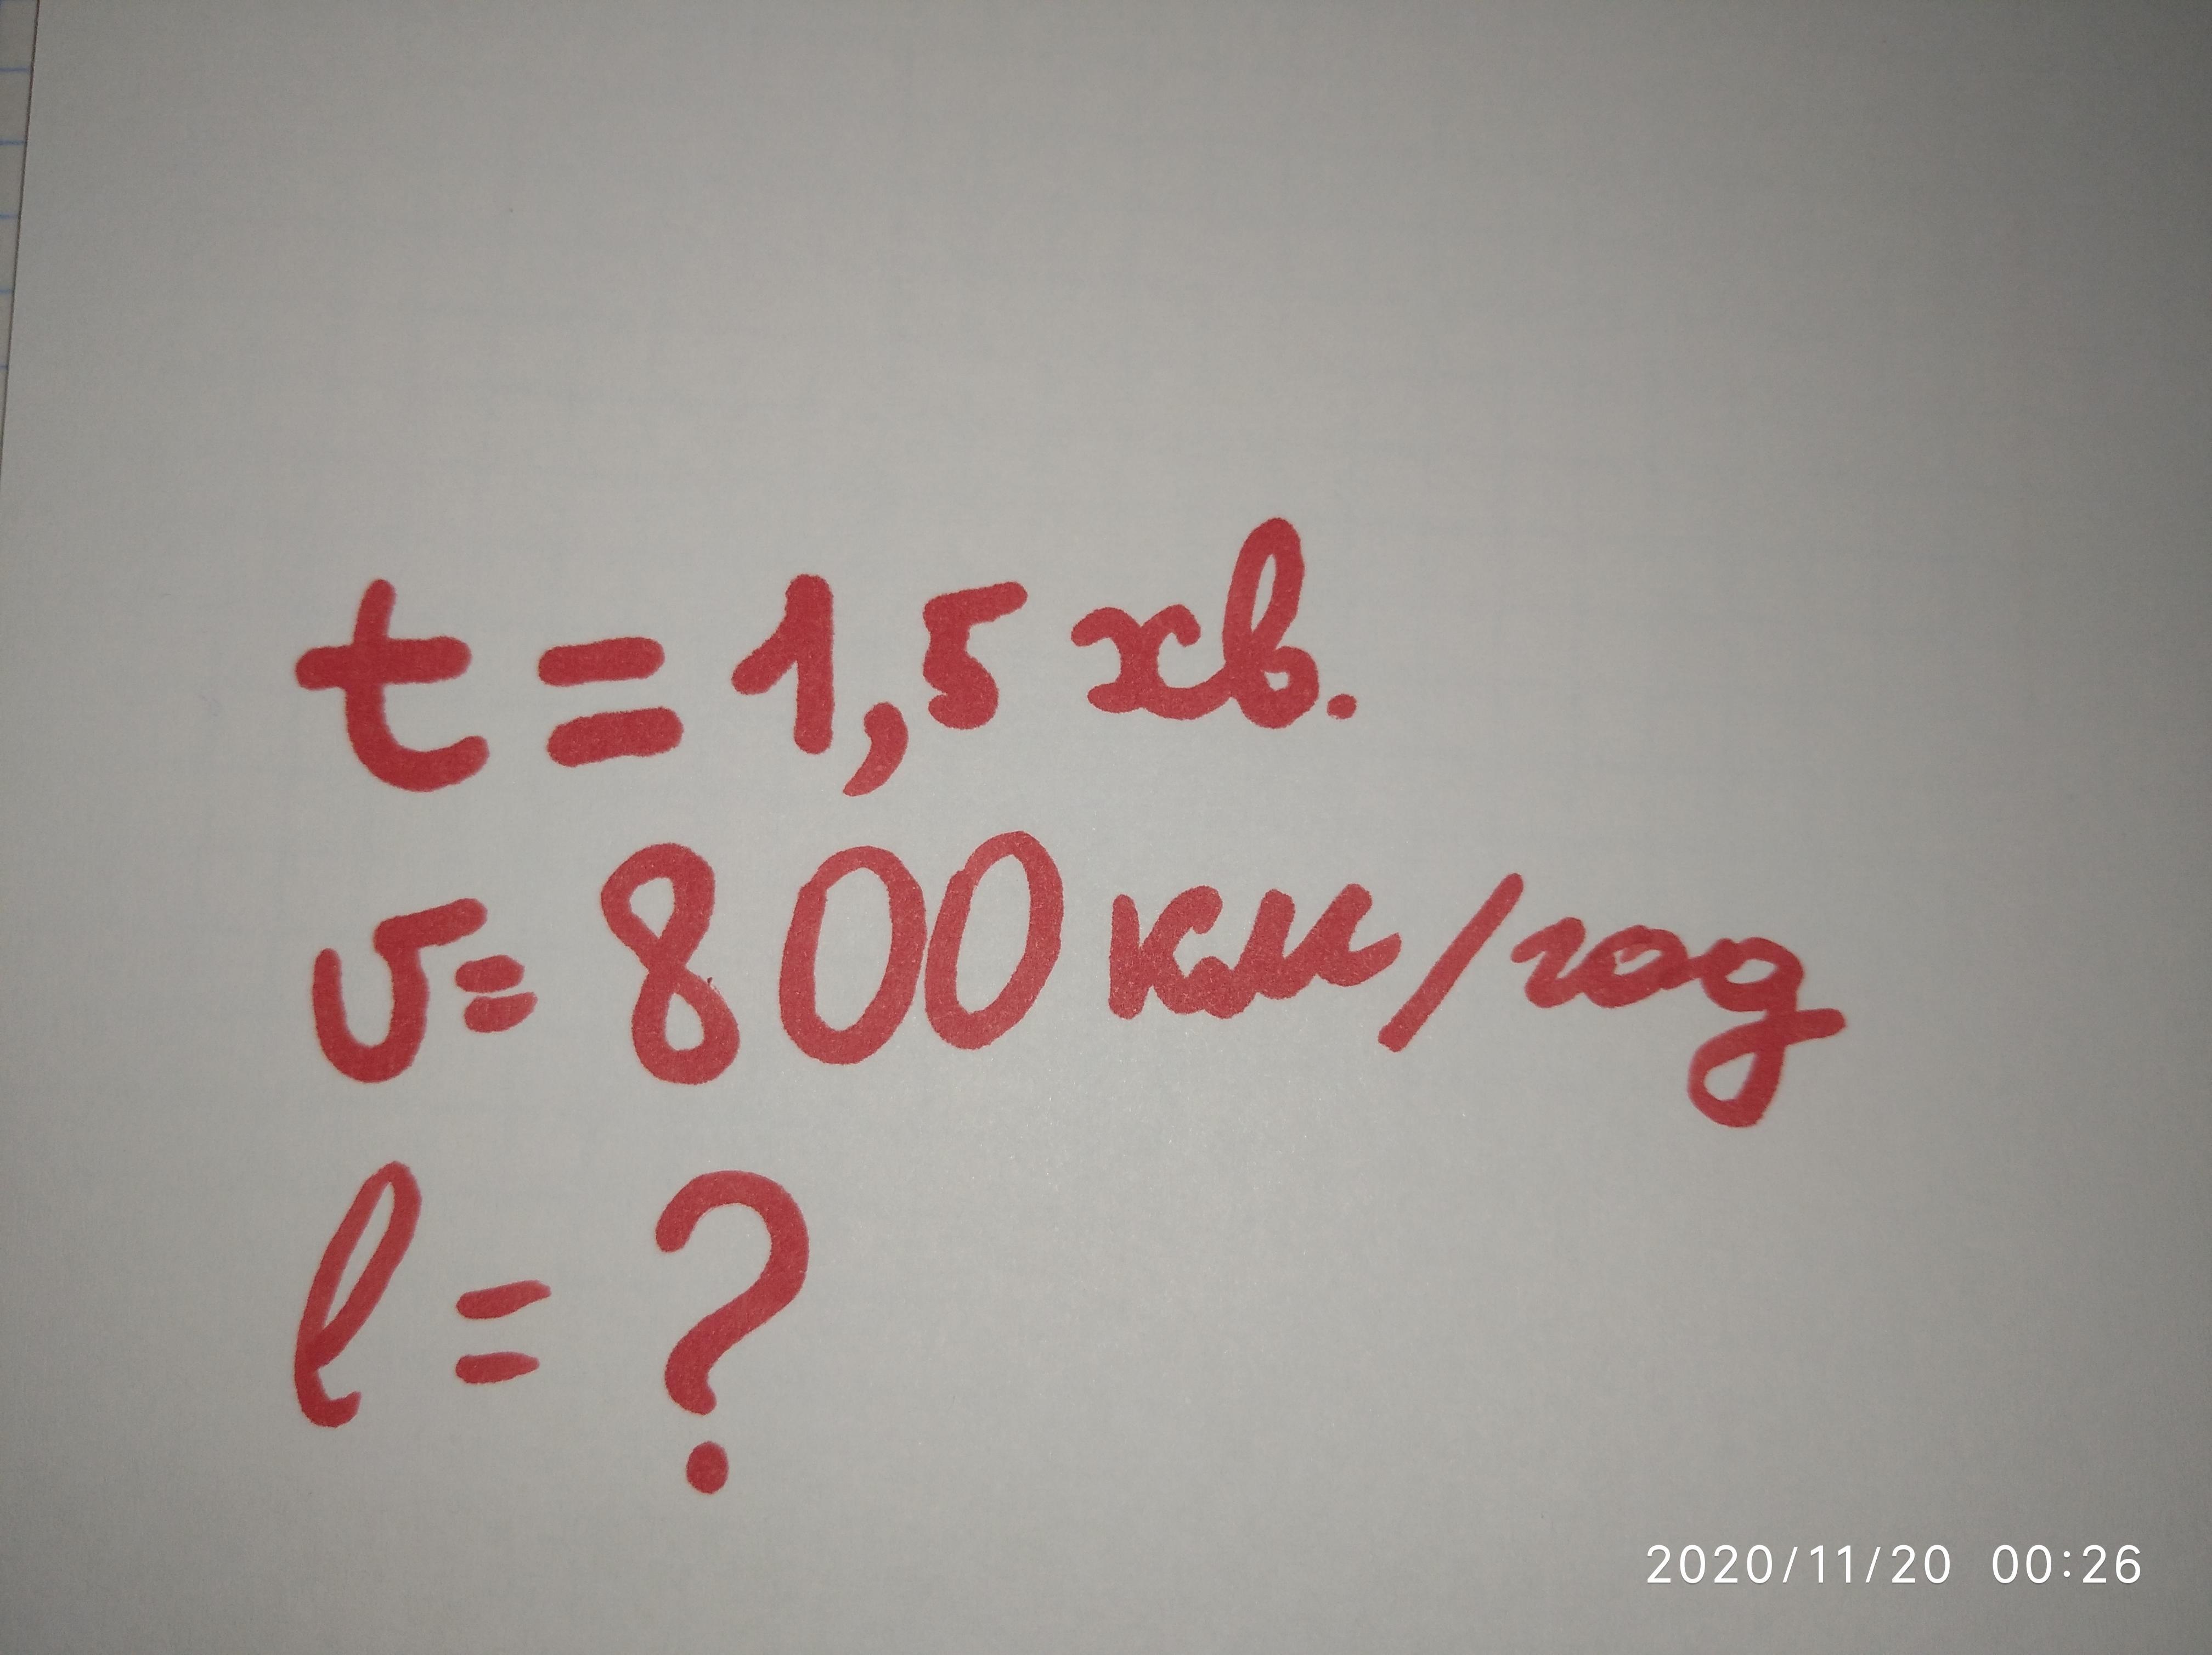 t = 1,5 хв.
υ = 800 км/год
l = ?
2020/11/20 00:26